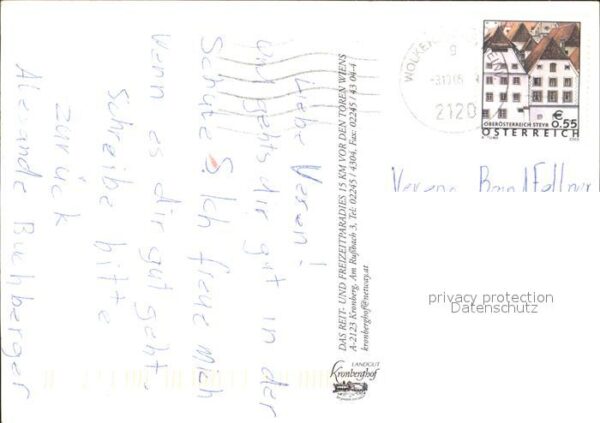 Liebe Veren!
Wie gehts dir gut in der
Schule? Ich freue mich
wenn es dir gut geht.
Schreibe bitte
zurück
Alexande Buchberger
DAS REIT- UND FREIZEITPARADIES 15 KM VOR DEN TOREN WIENS
A-2123 Kronberg, Am Rußbach 3, Tel: 02245 / 4304, Fax: 02245 / 43 04-4
kronberghof@netway.at
LANDGUT
Kronberghof
2120
€ 0.55
OBERÖSTERREICH STEYR
ÖSTERREICH
privacy protection
Datenschutz